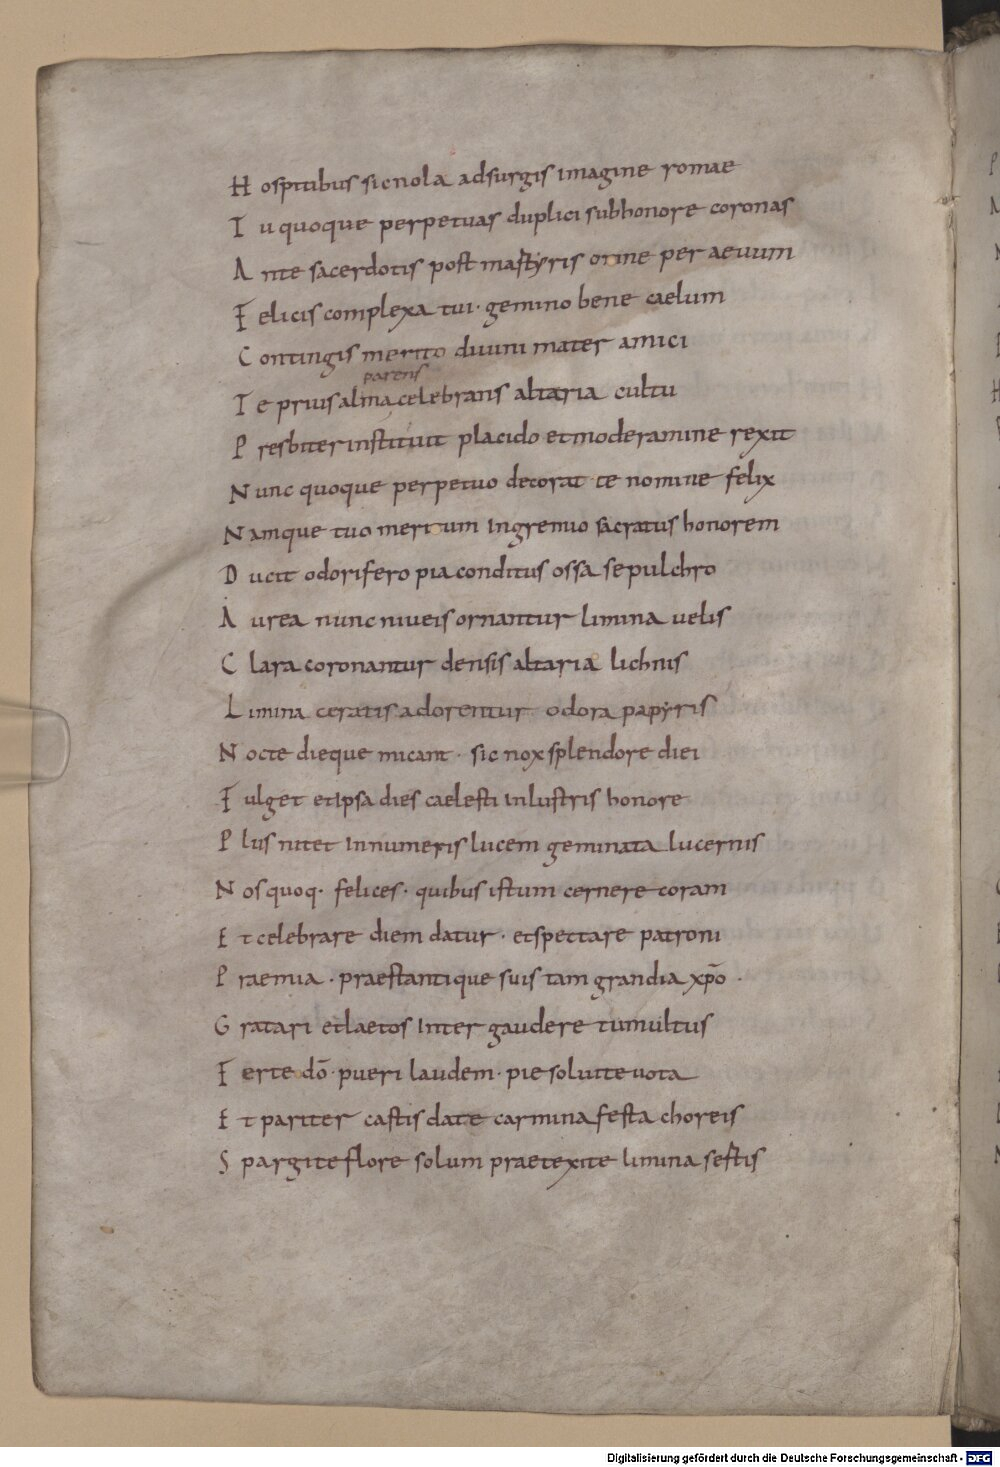 Hospitibus sic nola adsurgis imagine romae
Tu quoque perpetuas duplici sub honore coronas
Ante sacerdotis post martyris orine per aeuum
Felicis complexa tui· gemino bene caelum
Contingis merito diuini mater amici
parens
Te prius alma celebrans altaria cultu
Presbiter instituit placido et moderamine rexit
Nunc quoque perpetuo decorat te nomine felix
Namque tuo meritum In gremio sacratus honorem
Ducit odorifero pia conditus ossa sepulchro
Aurea nunc niueis ornantur limina uelis
Clara coronantur densis altaria lichnis
Limina ceratis adorentur odora papyris
Nocte dieque micant· sic nox splendore diei
Fulget et Ipsa dies caelesti Inlustris honore
Plus nitet Innumeris lucem geminata lucernis
Nos quoq· felices· quibus istum cernere coram
Et celebrare diem datur· et spectare patroni
Praemia· praestantique suis tam grandia xp̄o·
Gratari et laetos Inter gaudere tumultus
Ferte dō· pueri laudem· pie soluite uota
Et pariter castis date carmina festa choreis
Spargite flore solum praetexite limina sertis
Digitalisierung gefördert durch die Deutsche Forschungsgemeinschaft - DFG